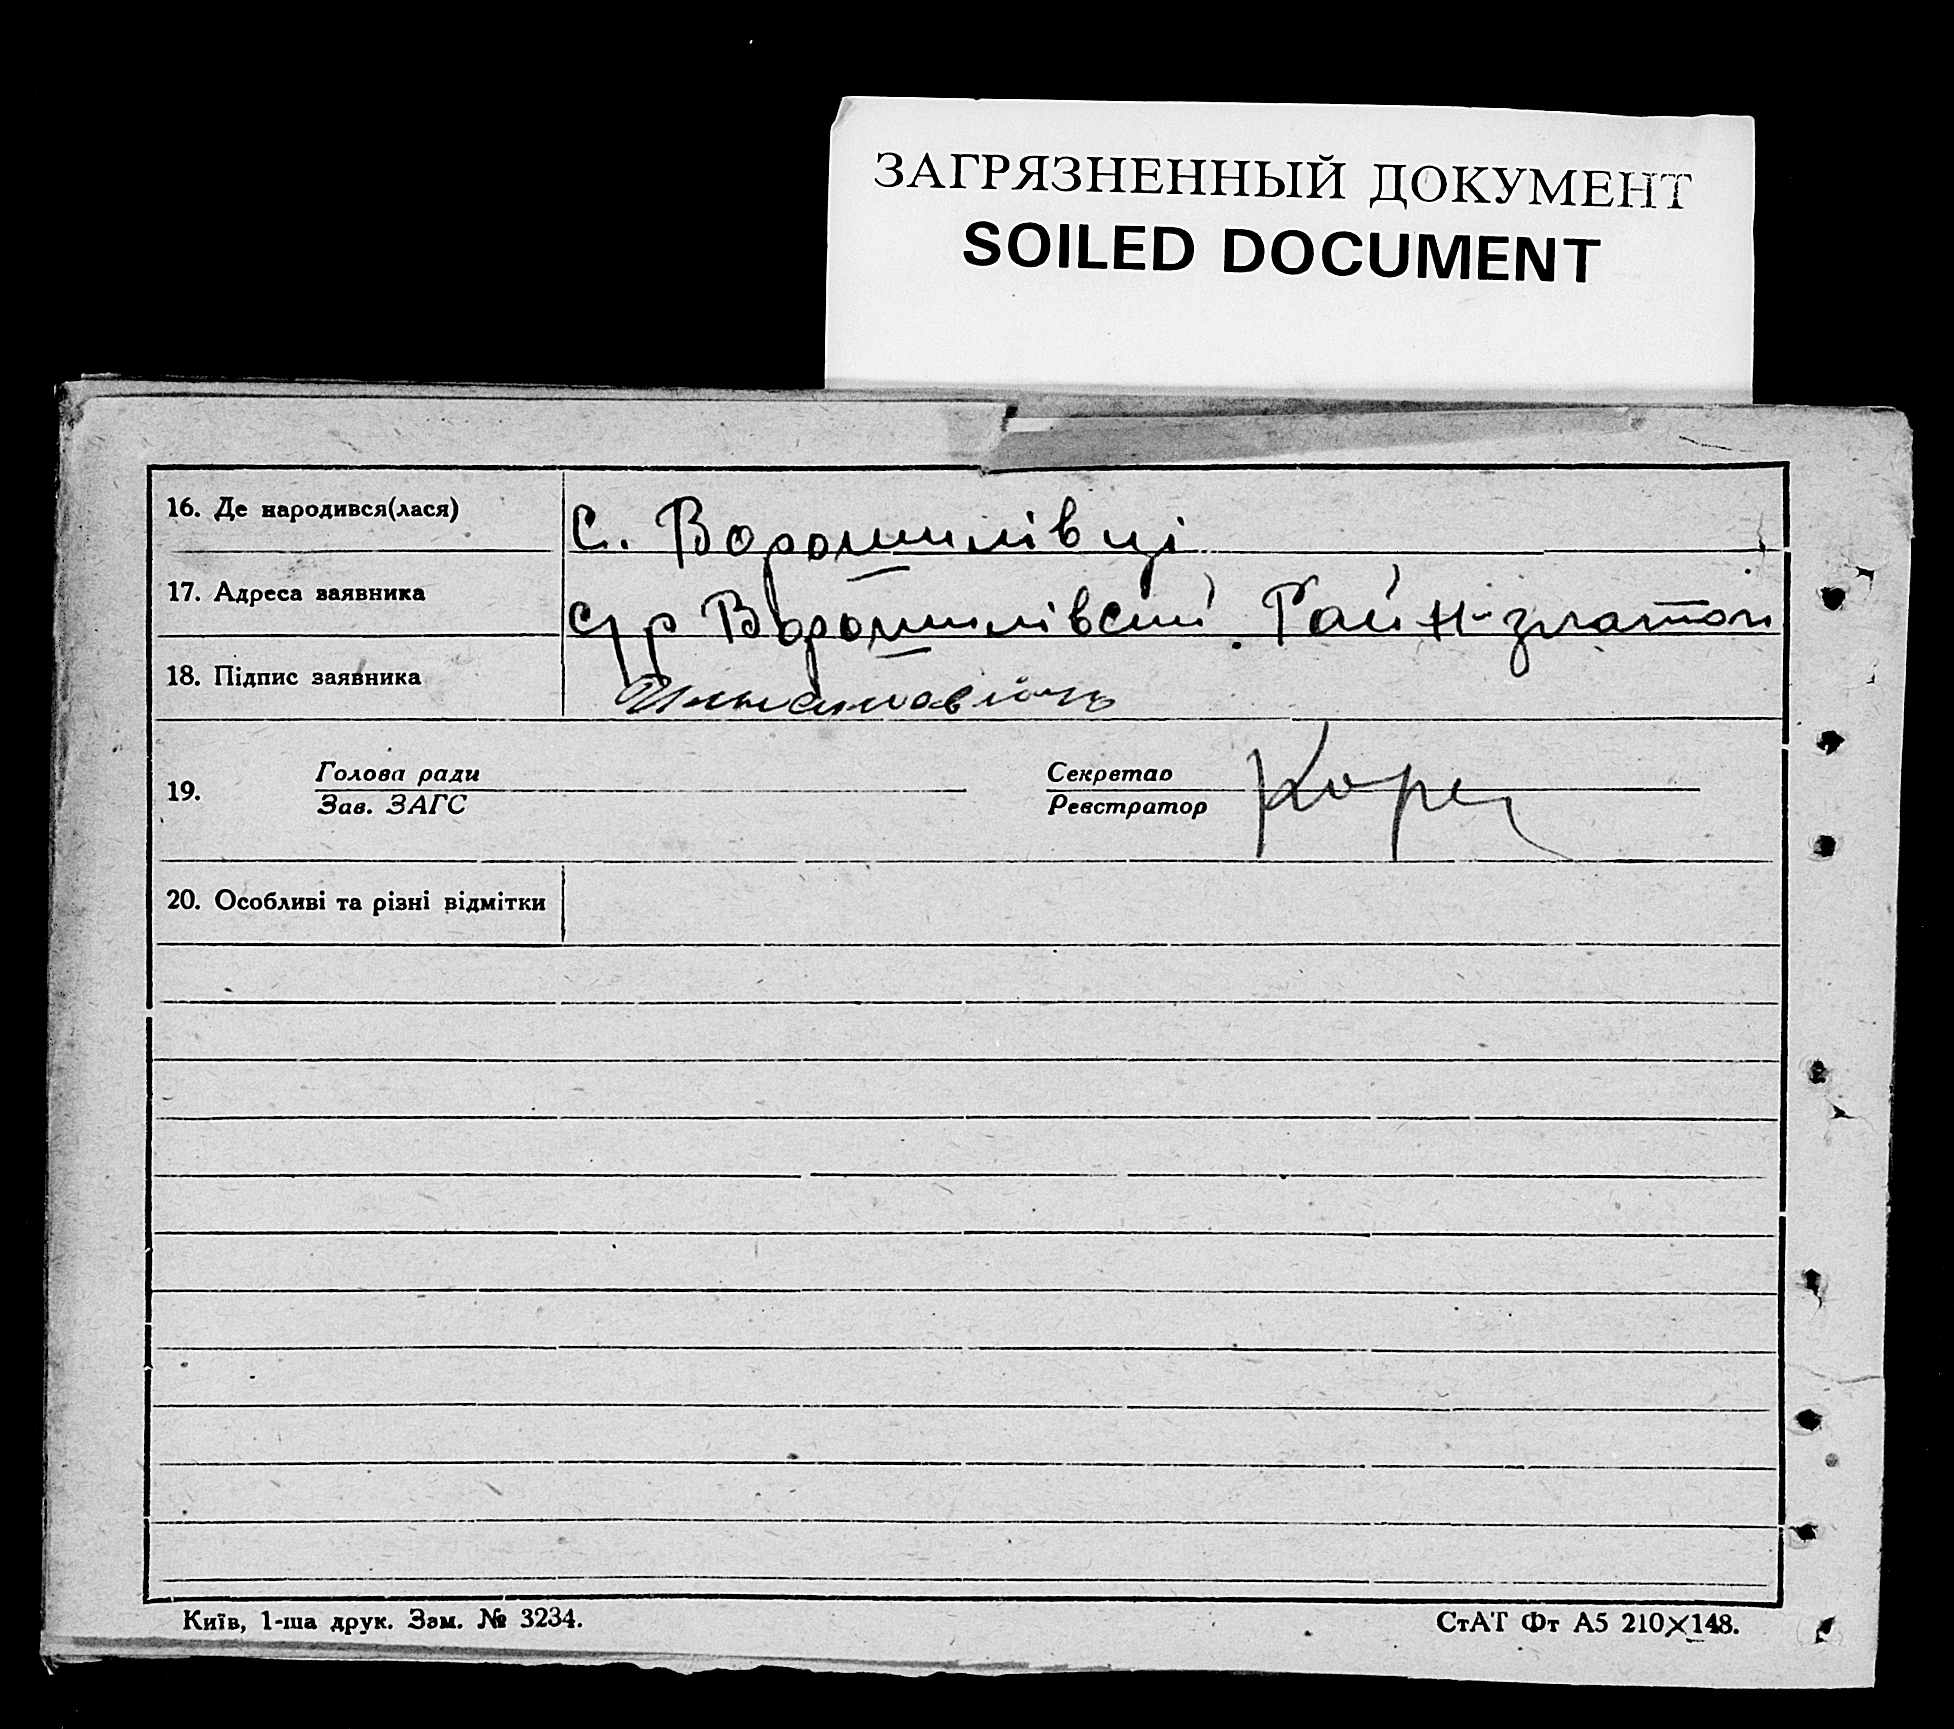 ЗАГРЯЗНЕННЫЙ ДОКУМЕНТ
SOILED DOCUMENT
16. Де народився(лася) с. Ворошилівці
17. Адреса заявника с/р Ворошилівский Рай
18. Підпис заявника
19. Голова ради Секретар
Зав. ЗАГС Реєстратор
20. Особливі та різні відмітки
Київ, 1-ша друк. Зам. № 3234. СтАТ Фт А5 210×148.